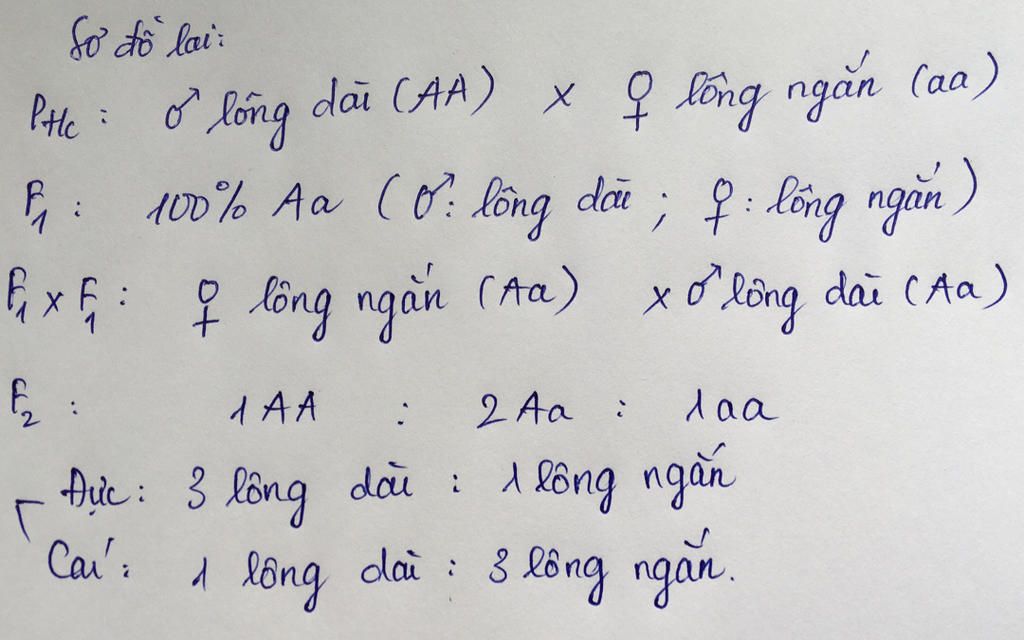 Sơ đồ lai:
Ptlc : ♂ lông dài (AA) x ♀ lông ngắn (aa)
F1 : 100% Aa (♂: lông dài ; ♀: lông ngắn)
F1 x F1 : ♀ lông ngắn (Aa) x ♂ lông dài (Aa)
F2 : 1 AA : 2 Aa : 1 aa
Đực: 3 lông dài : 1 lông ngắn
Cái: 1 lông dài : 3 lông ngắn.